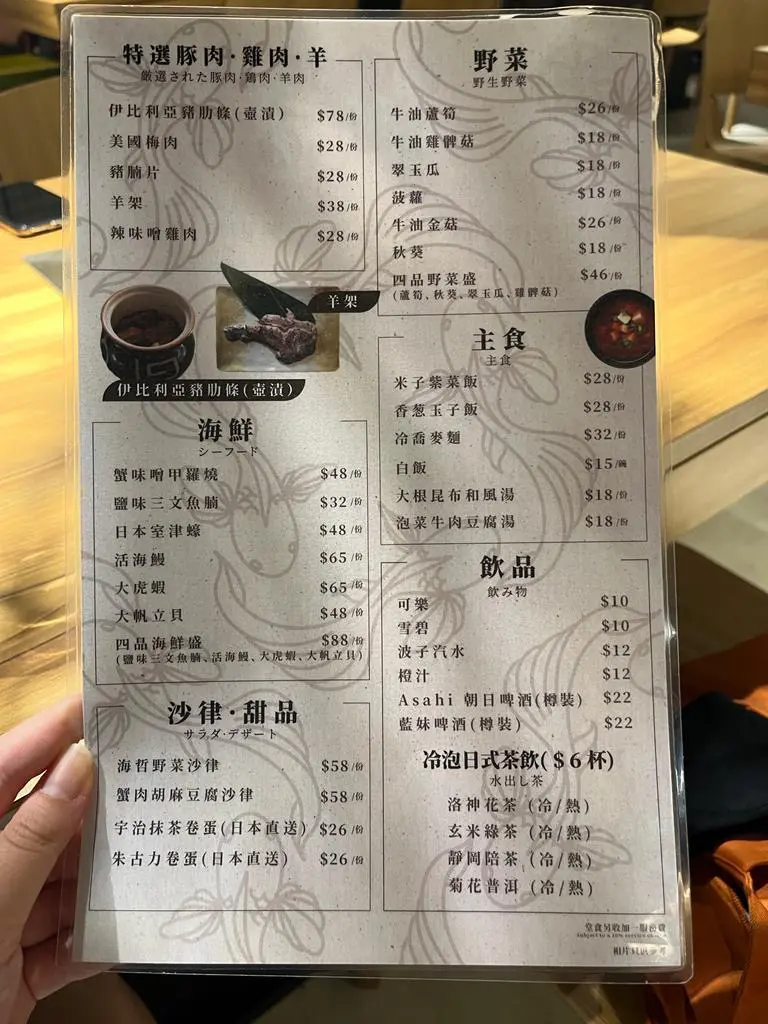 特選豚肉·雞肉·羊
厳選された豚肉·鶏肉·羊肉
伊比利亞豬肋條(壺漬) $78/份
美國梅肉 $28/份
豬腩片 $28/份
羊架 $38/份
辣味噌雞肉 $28/份
羊架
伊比利亞豬肋條(壺漬)
海鮮
シーフード
蟹味噌甲羅燒 $48/份
鹽味三文魚腩 $32/份
日本室津蠔 $48/份
活海鰻 $65/份
大虎蝦 $65/份
大帆立貝 $48/份
四品海鮮盛 $88/份
(鹽味三文魚腩、活海鰻、大虎蝦、大帆立貝)
沙律·甜品
サラダ·デザート
海哲野菜沙律 $58/份
蟹肉胡麻豆腐沙律 $58/份
宇治抹茶卷蛋(日本直送) $26/份
朱古力卷蛋(日本直送) $26/份
野菜
野生野菜
牛油蘆筍 $26/份
牛油雞髀菇 $18/份
翠玉瓜 $18/份
菠蘿 $18/份
牛油金菇 $26/份
秋葵 $18/份
四品野菜盛 $46/份
(蘆筍、秋葵、翠玉瓜、雞髀菇)
主食
主食
米子紫菜飯 $28/份
香葱玉子飯 $28/份
冷喬麥麵 $32/份
白飯 $15/碗
大根昆布和風湯 $18/份
泡菜牛肉豆腐湯 $18/份
飲品
飲み物
可樂 $10
雪碧 $10
波子汽水 $12
橙汁 $12
Asahi 朝日啤酒(樽裝) $22
藍妹啤酒(樽裝) $22
冷泡日式茶飲($6杯)
水出し茶
洛神花茶 (冷/熱)
玄米綠茶 (冷/熱)
靜岡陪茶 (冷/熱)
菊花普洱 (冷/熱)
堂食另收加一服務費
Subject to a 10% service
相片只供參考